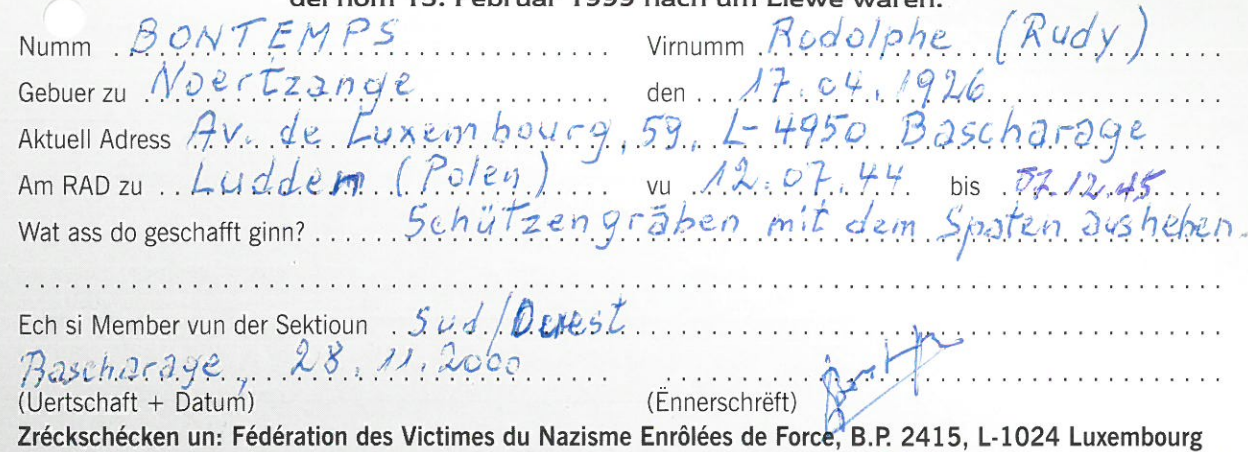 dei nom 15. Februar 1999 nach um Liewe waren.
Numm BONTEMPS Virnumm Rodolphe (Rudy)
Gebuer zu Noertzange den 17.04.1926
Aktuell Adress Av. de Luxembourg, 59, L-4950 Bascharage
Am RAD zu Luddem (Polen) vu 12.07.44 bis 07.12.45
Wat ass do geschafft ginn? Schützengräben mit dem Spaten ausheben.
Ech si Member vun der Sektioun Sud/Ouest
Bascharage, 28.11.2000
(Uertschaft + Datum) (Ënnerschrëft)
Zréckschécken un: Fédération des Victimes du Nazisme Enrôlées de Force, B.P. 2415, L-1024 Luxembourg